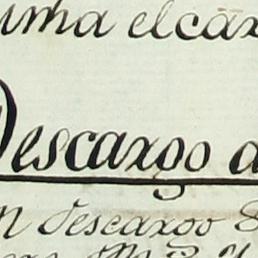 uma el car
Descargo d
n descargo